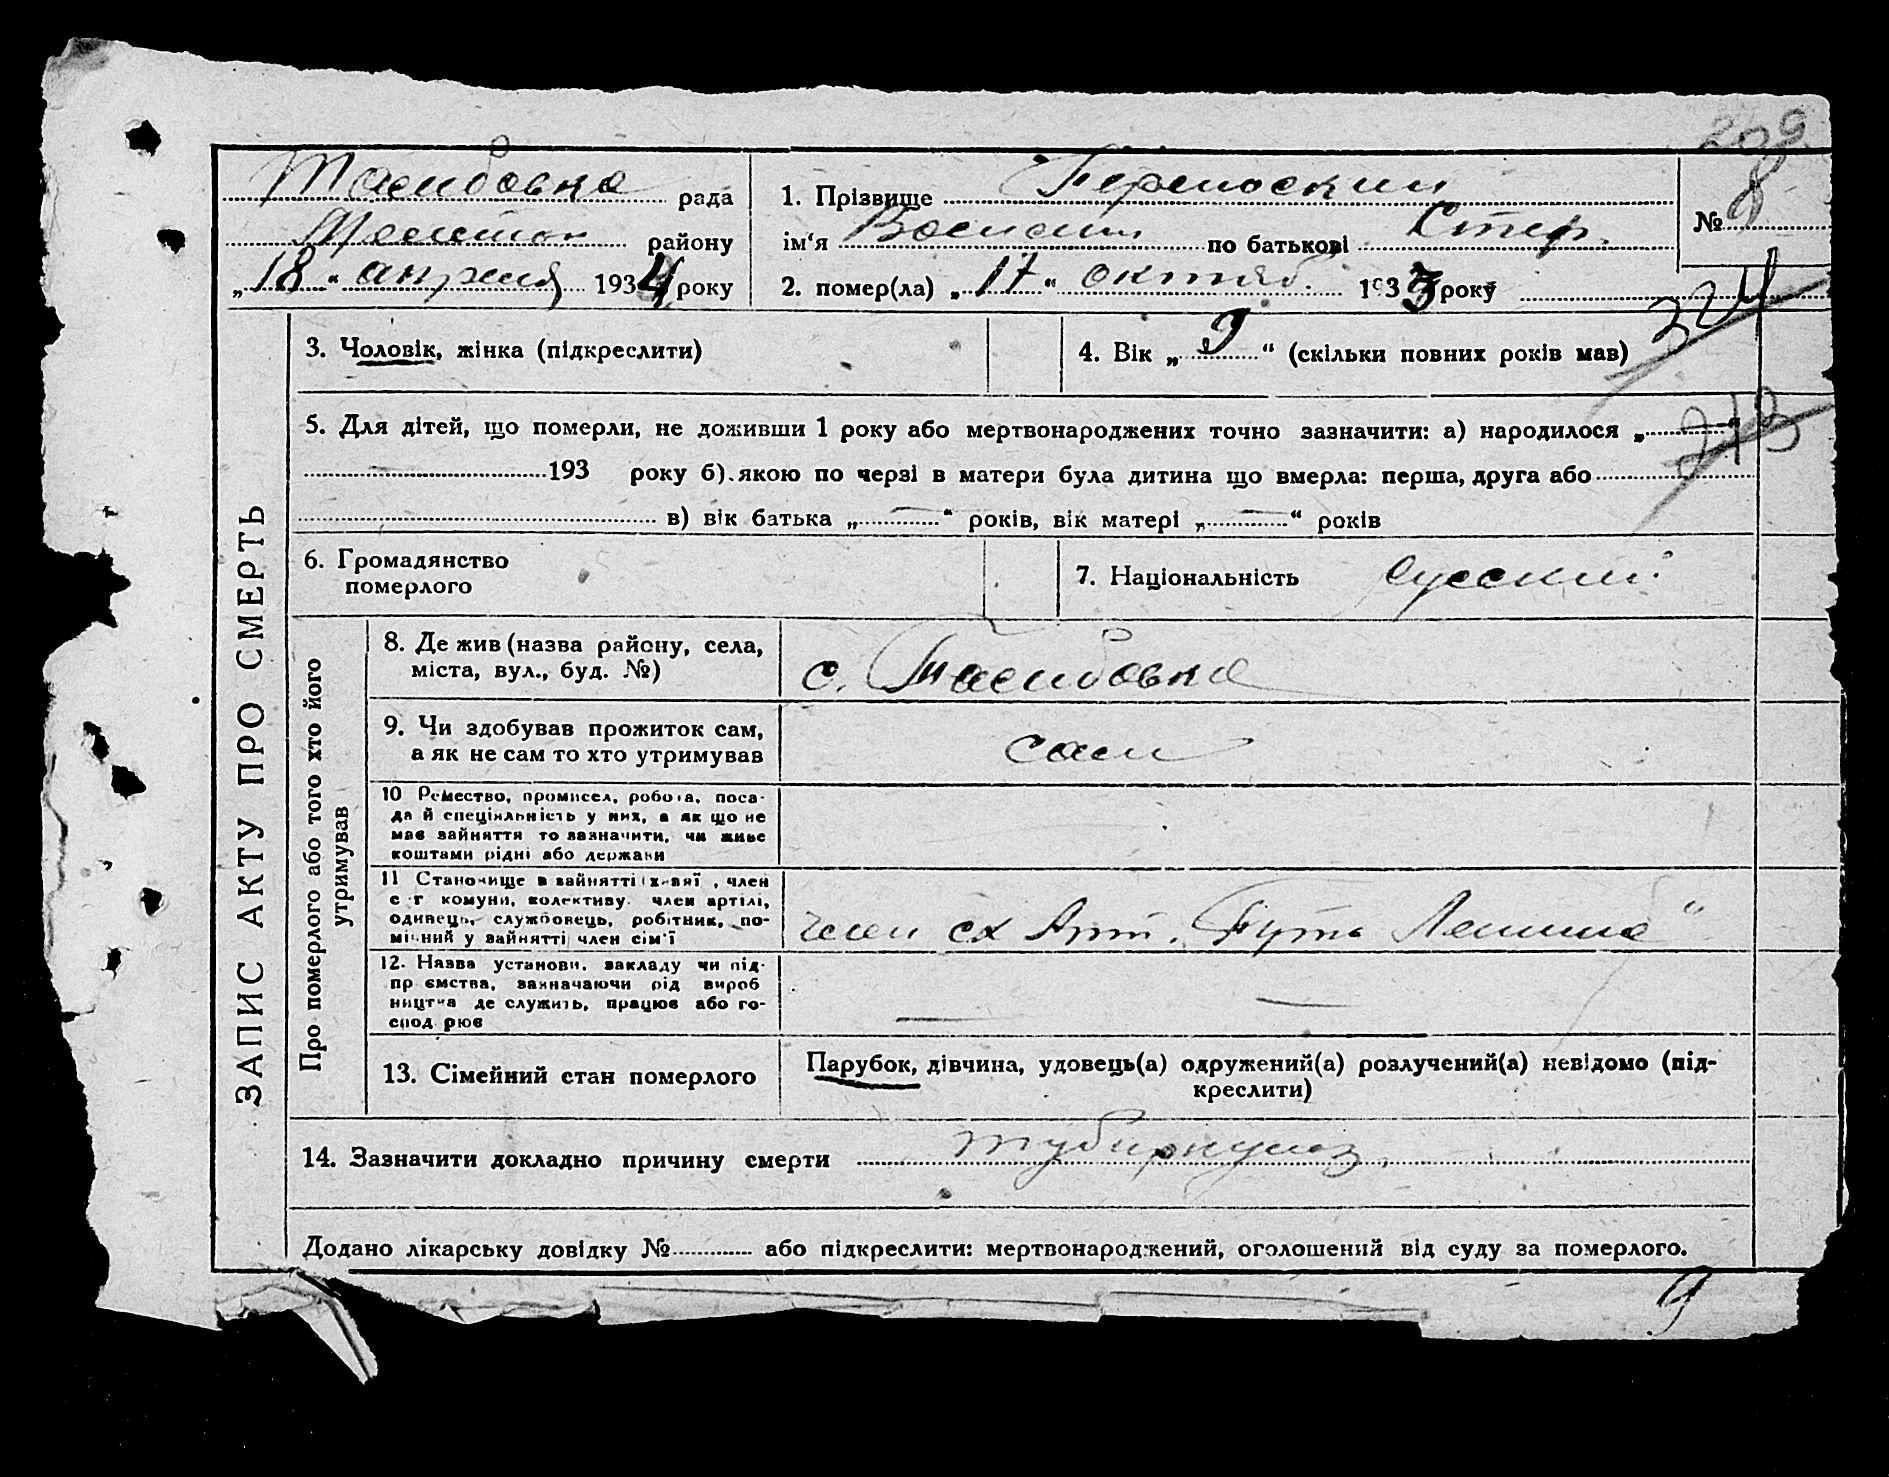 209
Тасибовка рада
району
„18“ апреля 1934 року
1. Прізвище
ім‘я Василий по батькові Стеф.
2. помер(ла) „17“ октяб. 1933 року
№ 8
224
3. Чоловік, жінка (підкреслити)
4. Вік „9“ (скільки повних років мав)
273
5. Для дітей, що померли, не доживши 1 року або мертвонароджених точно зазначити: а) народилося „
193 року б). якою по черзі в матери була дитина що вмерла: перша, друга або
в) вік батька „—“ років, вік матері „—“ років
6. Громадянство
померлого
7. Національність русский
ЗАПИС АКТУ ПРО СМЕРТЬ
Про померлого або того хто його
утримував
8. Де жив (назва району, села,
міста, вул., буд. №)
с. Тасибовка
9. Чи здобував прожиток сам,
а як не сам то хто утримував
сам
10 Ремество, промисел, робота, поса-
да й спеціяльність у них, а як що не
має зайняття то зазначити, чи живе
коштами рідні або держави
11 Становище в зайнятті , член
с г комуни, колективу член артілі,
одинець, службовець, робітник, по-
мічний у зайнятті член сім'ї
член сх Арт. „Путь Ленина“
12. Назва установи, закладу чи під-
пр ємства, зазначаючи рід вироб
ництва де служить, працює або го-
спод рює
— —
13. Сімейний стан померлого
Парубок, дівчина, удовець(а) одружений(а) розлучений(а) невідомо (під-
креслити)
14. Зазначити докладно причину смерти туберкулоз
Додано лікарську довідку № або підкреслити: мертвонароджений, оголошений від суду за померлого.
9